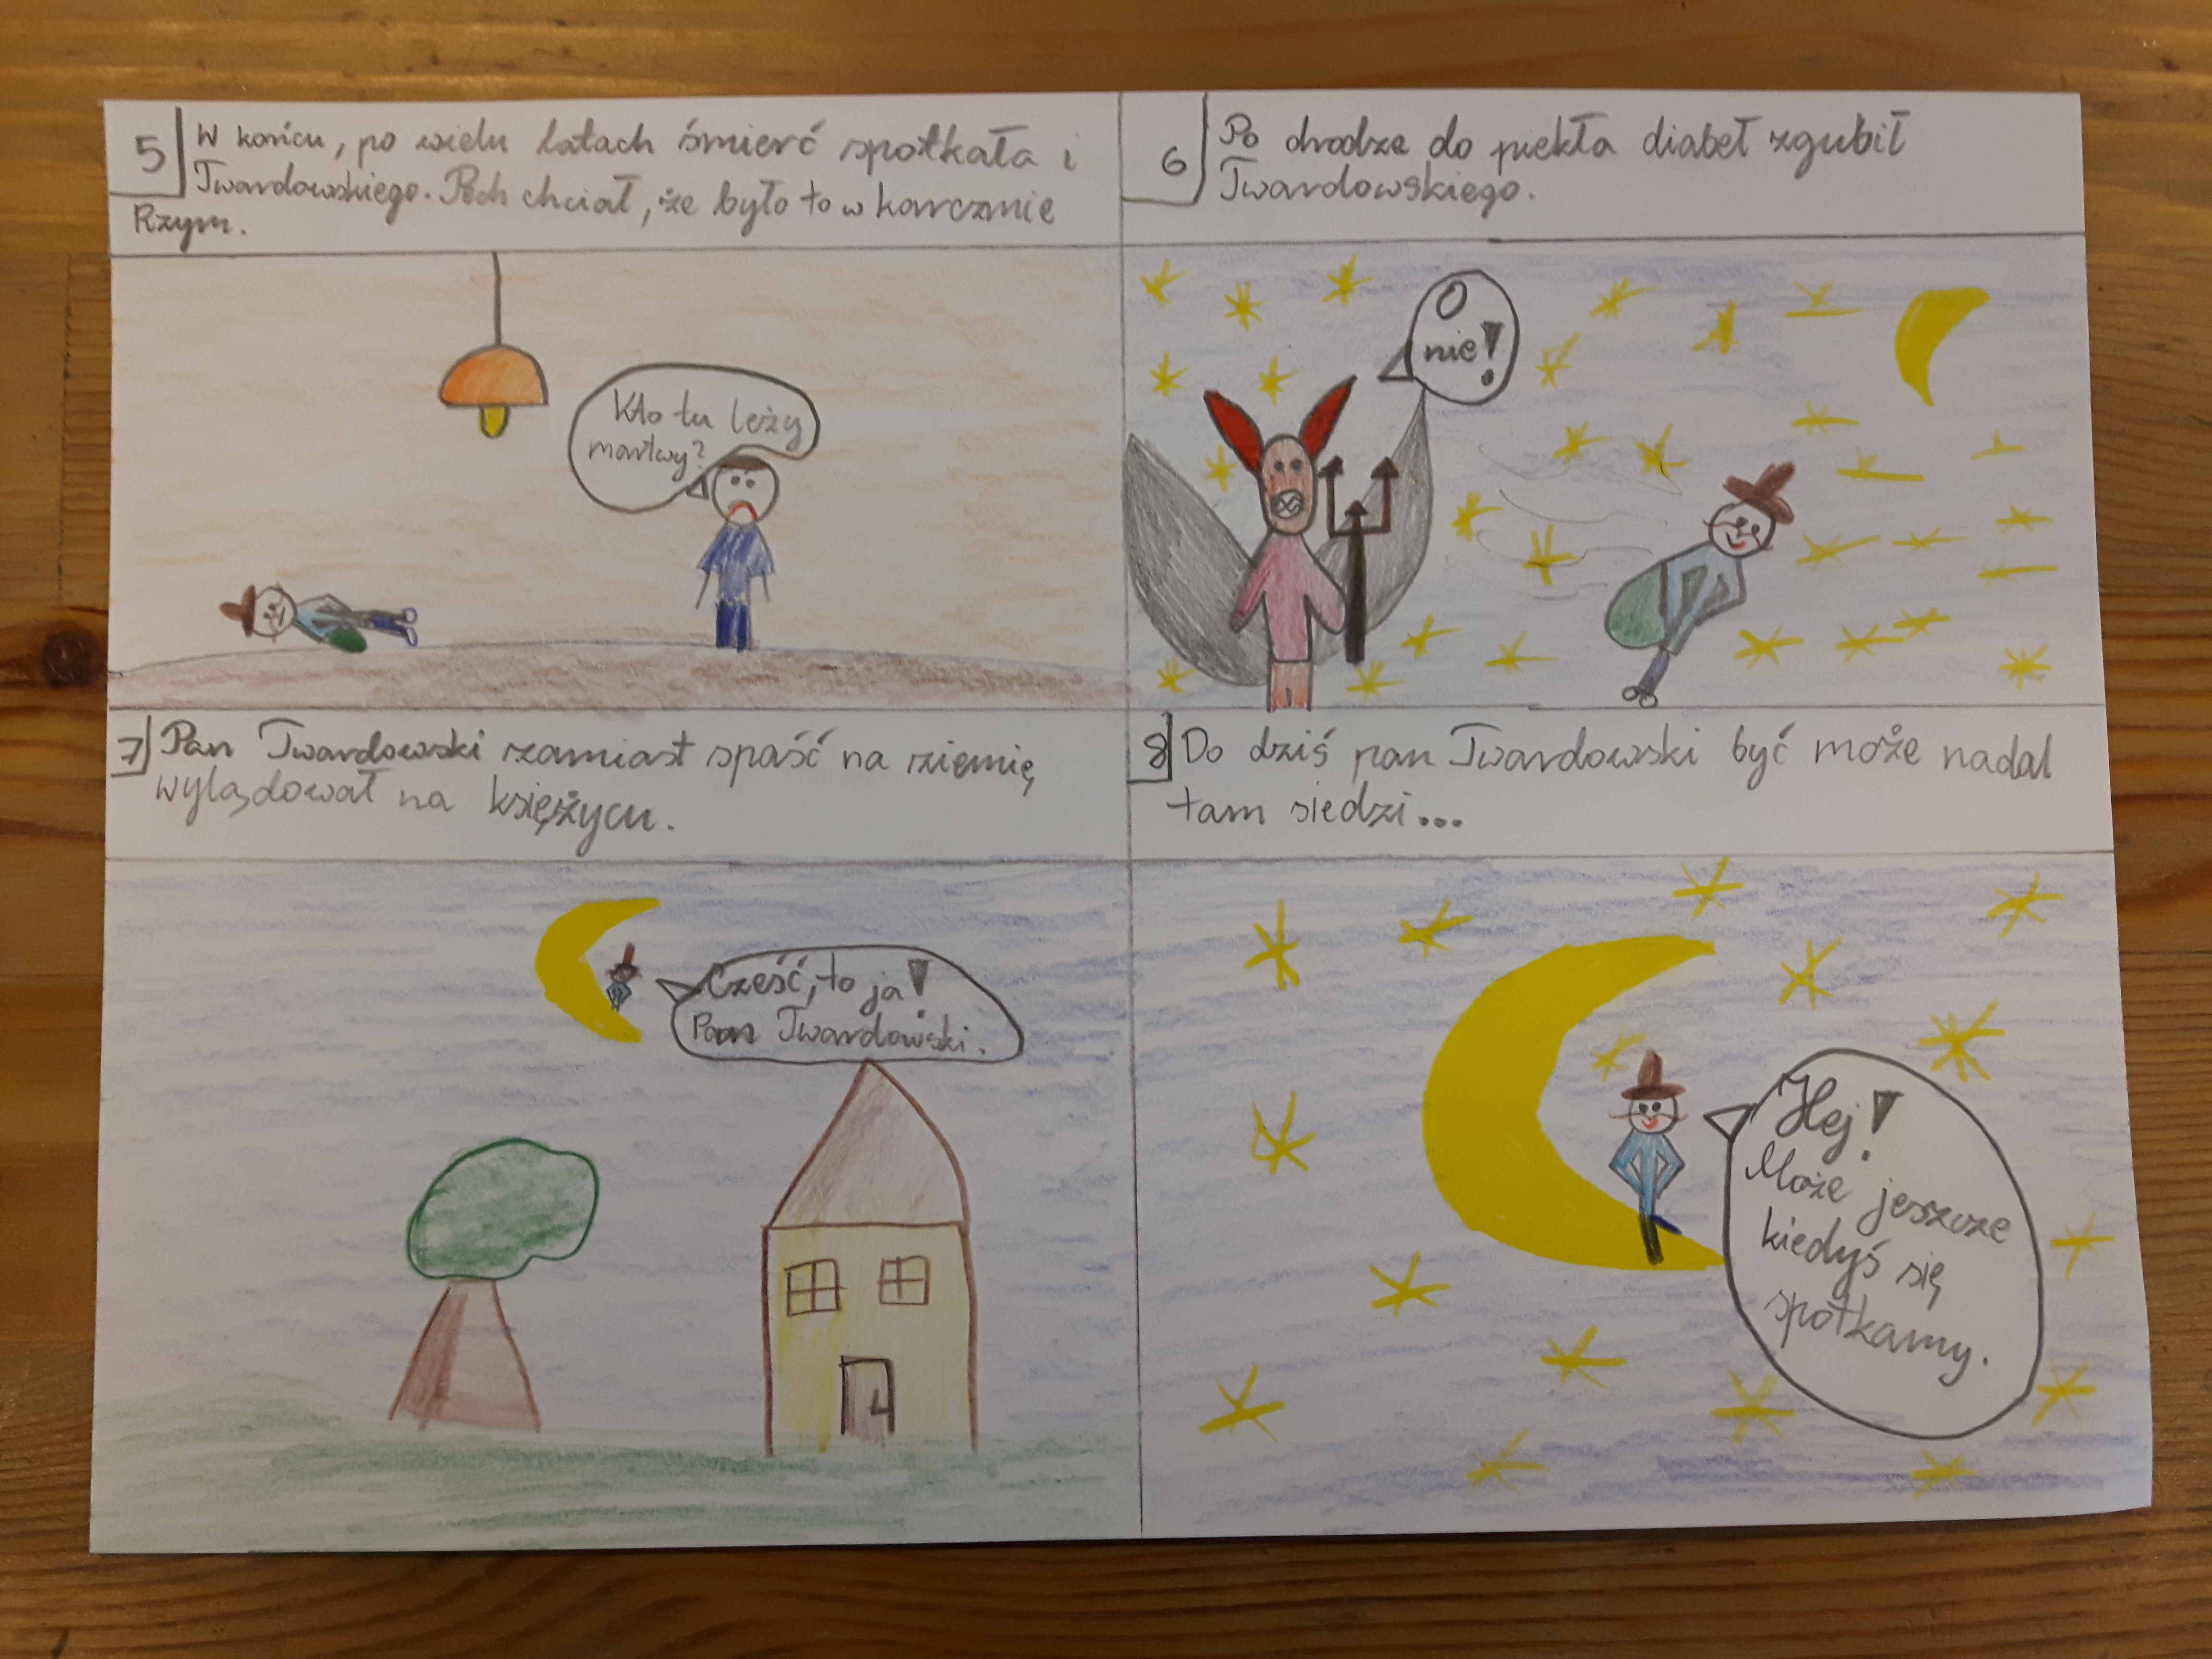 5
W końcu, po wielu latach śmierć spotkała i
Twardowskiego. Pech chciał, że było to w karczmie
Rzym.
Kto tu leży
martwy?
6
Po drodze do piekła diabeł zgubił
Twardowskiego.
O
nie!
7
Pan Twardowski zamiast spaść na ziemię
wylądował na księżycu.
Cześć, to ja!
Pan Twardowski.
8
Do dziś pan Twardowski być może nadal
tam siedzi...
Hej!
Może jeszcze
kiedyś się
spotkamy.